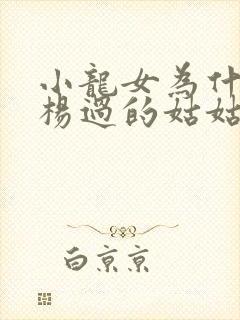 小龍女為什
楊過的姑姑
白京京